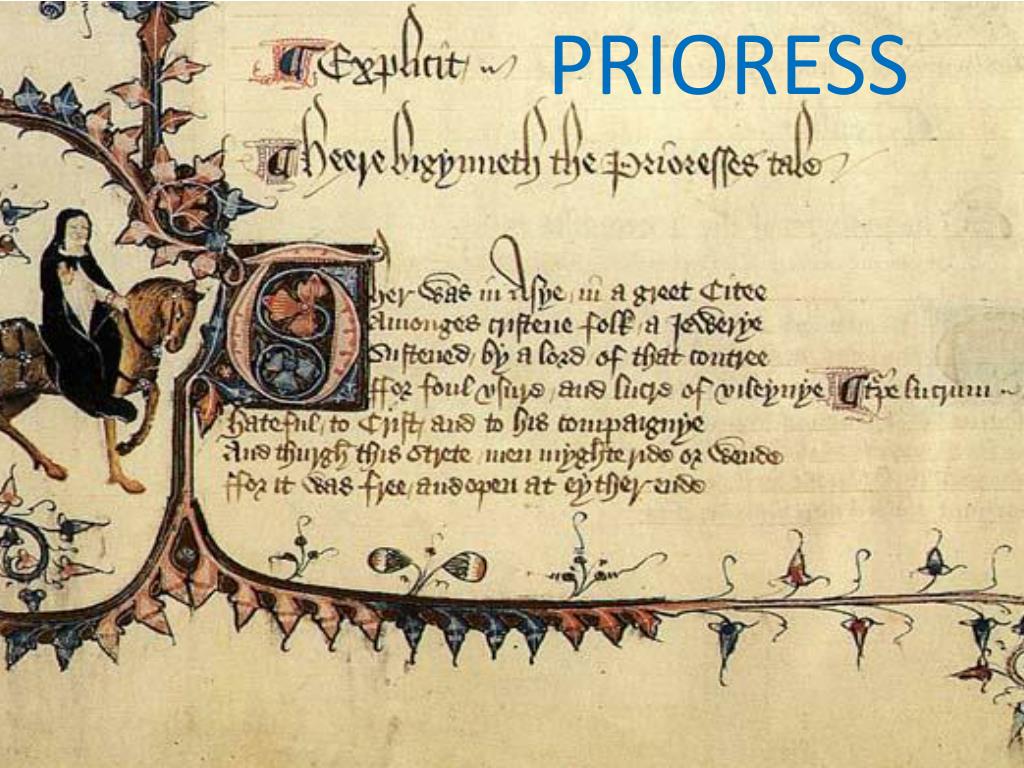 Explicit
PRIORESS
Heere bigynneth the Prioresses tale
Ther was in Asye in a greet Citee
Amonges cristene folk a Jewerye
Sustened by a lord of that contree
ffor foul vsure and lucre of vileynye
hateful to Crist and to his compaignye
And thurgh this Strete men myghte ride or wende
ffor it was free and open at eyther ende